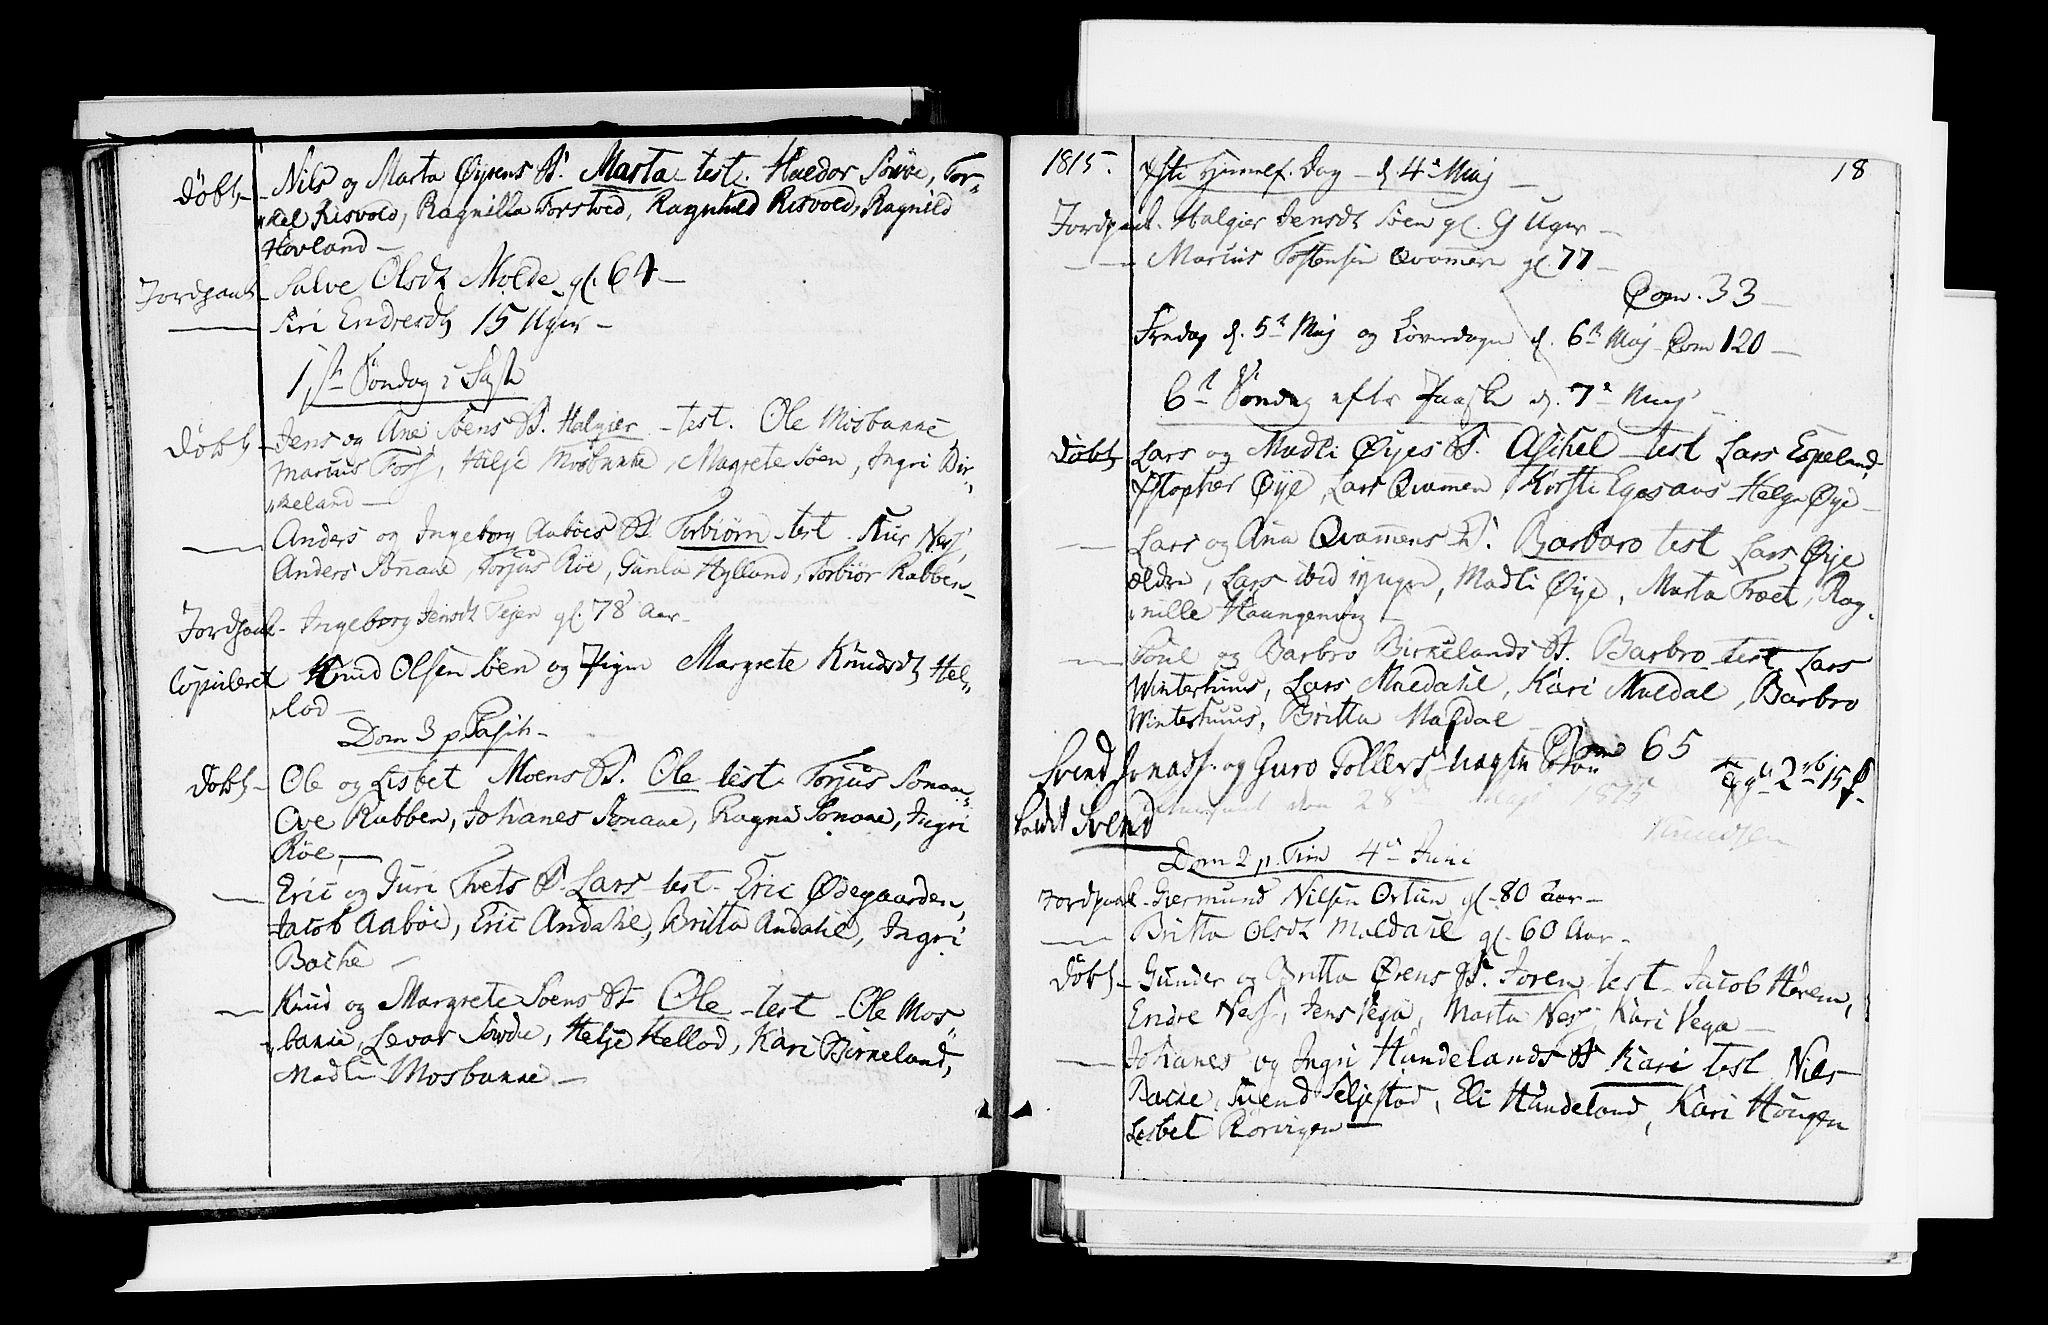 Döbt - Nils og Marta Öyrens B. Marta test. Haldor Sowe, Tor-
kel Risvold, Ragnilla Torstved, Ragnhild Risvold, Ragnild
Hovland -
Jordpaak - Salve Olsdt Molde gl. 64 -
Siri Endresdt 15 Uger -
1ste Söndag i Faste
Döbt - Jens og Ane Söens B. Halgier - test. Ole Mosbanne
Marius Foss, Hilje Mosbanne, Magrete Söen, Ingri Bir-
keland -
Anders og Ingeborg Aaböes B. Torbiörn test. Siur Ness,
Anders Sonave, Torjus Röe, Gunla Hylland, Torbiör Rabben -
Jordpaak - Ingeborg Jensdt Tejen gl. 78 Aar -
Copuleret Knud Olsen Söen og Pigen Margrete Knudsdt Hel-
lad -
Dom 3 p. Pasch -
Döbt - Ole og Lisbet Moens B. Ole test. Torjus Sonan
Ove Rabben, Johanes Sonave, Ragna Sonave, Ingri
Röe, -
Eric og Guri Tvets B. Lars test - Eric Ödegaarden,
Jacob Aaböe, Eric Andahl, Britta Andahl, Ingri
Bache -
Knud og Margrete Soens B. Ole - test - Ole Mos
banne, Levor Sowde, Helje Hellad, Kari Birkeland,
Madli Mosbanne -
1815. Christi Himmelf. Dag - d. 4de Maj - 18
Jordpaak - Halgier Jensdt Söen gl. 9 Uger -
Marius Tostensen Qvamen gl. 77 -
Com. 33 -
Fredag d. 5te Maj og Löverdagen d. 6te Maj Com 120 -
6te Söndag efter Paaske d. 7de Maj
Döbt Lars og Madli Öyes B. Aschel test Lars Espeland
Christopher Öye, Lars Qvamen, Kirsti Egesaas Helge Öye -
Lars og Ana Qvamens B. Barbaro test Lars Öye
ældre, Lars ibid yngre, Madli Öye, Marta Traet, Rag-
nille Haangensvig -
Poul og Barbro Birkelands B. Barbro test Lars
Winterhuus, Lars Maldahl, Kari Maldal, Barbro
Winterhuus, Britta Maldal
Svend Jonass. og Guro Tollers uægte 65
2 15
kaldt Svend den 28de Maji 1815
Knudsen
Dom 2 p. Trin 4de Juni
Jordpaak - Giermund Nilsen Ortun gl. 80 Aar -
Britta Olsdt Maldahl gl. 60 Aar -
Döbt - Gunder og Britta Örens B. Soren test - Jacob Herem,
Endre Ness, Jens Vega, Marta Ness, Kari Vega -
Johanes og Ingri Hundelands B Kari test Nils
Bache, Svend Seljestad, Eli Hundeland, Kari Hougen
Lisbet Rörvigen -